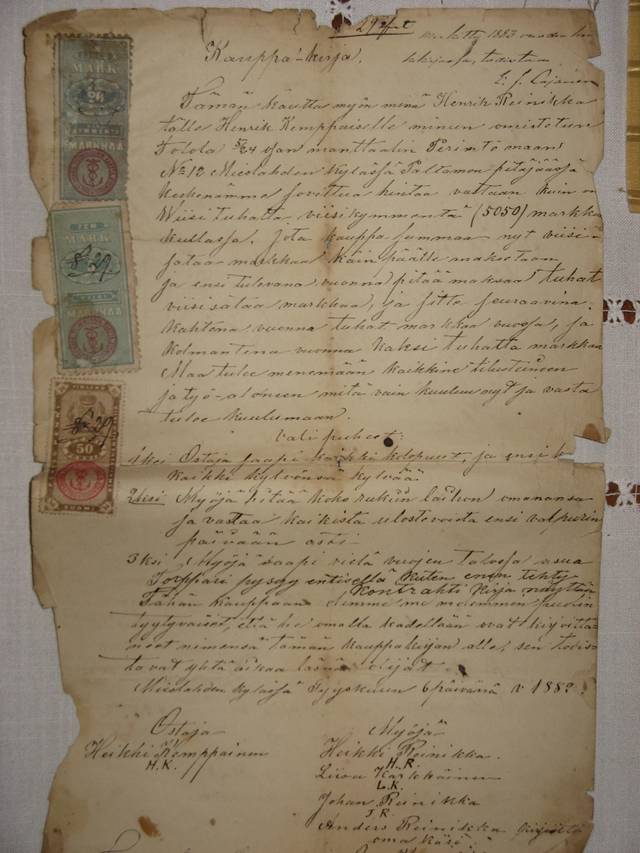 Kauppa-kirja.
Tämän kautta myön minä Henrik Reinikka
tälle Henrik Kemppaiselle minun omistetun
Tolola 5/24 osan manttaalin Perintö maani
No 12 Mieslahden kylässä Paltamon pitäjäässä
keskenämme sovittua hintaa vastaan kuin on
Wiisi tuhatta viisikymmentä (5050) markka
kullassa. Jota kauppa summaa nyt viisi-
sataa markkaa käsin päälle maksetaan
ja ensi tulevana vuonna pitää maksaa tuhat
viisisataa markkaa, ja sitte seuraavina
kahtena vuonna tuhat markkaa vuosa, ja
kolmantena vuonna kaksi tuhatta markkaa
Maa tulee menemään kaikkine tiluksineen
ja työ-aloneen mitä vain kuuluu nyt ja vasta
tulee kuulumaan.
Välipuheet:
1 ksi Ostaja saapi kaikki kelopuut, ja ensi k
kaikki kylvönsä kylvää
2 eisi Myöjä pitää koko rukiin laihon omanansa
ja vastaa kaikista ulostovoista ensi valpurin
päivään asti
3 ksi Myöjä saapi vielä vuojen talossa asua
Torppari pysyy entisellä kuten ennen tehty
kontrahti kirja näyttää
Tähän kauppaan olemme me molemmin puolin
tyytyväiset, että he omalla kädellään ovat kirjoitta
neet nimensä tämän kauppakirjan alle, sen todis
tavat yhtä aikaa läsnä olijat
Mieslahden kylässä Syyskuun 6 päivänä v 188
Ostaja
Heikki Kemppainen
H.K.
Myöjä
Heikki Reinikka.
H.R.
Liisa Karkkäinen
L.K.
Johan Reinikka
J.R.
Anders Reinikka
oma käsi
MARK
MARKKAA
MARK
MARKKAA
50
SUOMI